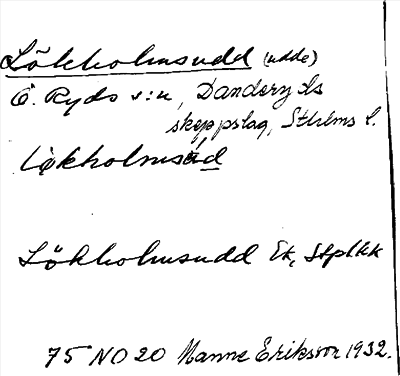 Lökholmsudd (udde)
Ö. Ryds s:n, Danderyds
skeppslag, Sthlms l.
Lökholmsud
Lökholmsudd Ek, Stplkk
75 NO 20 Manne Eriksson 1932.